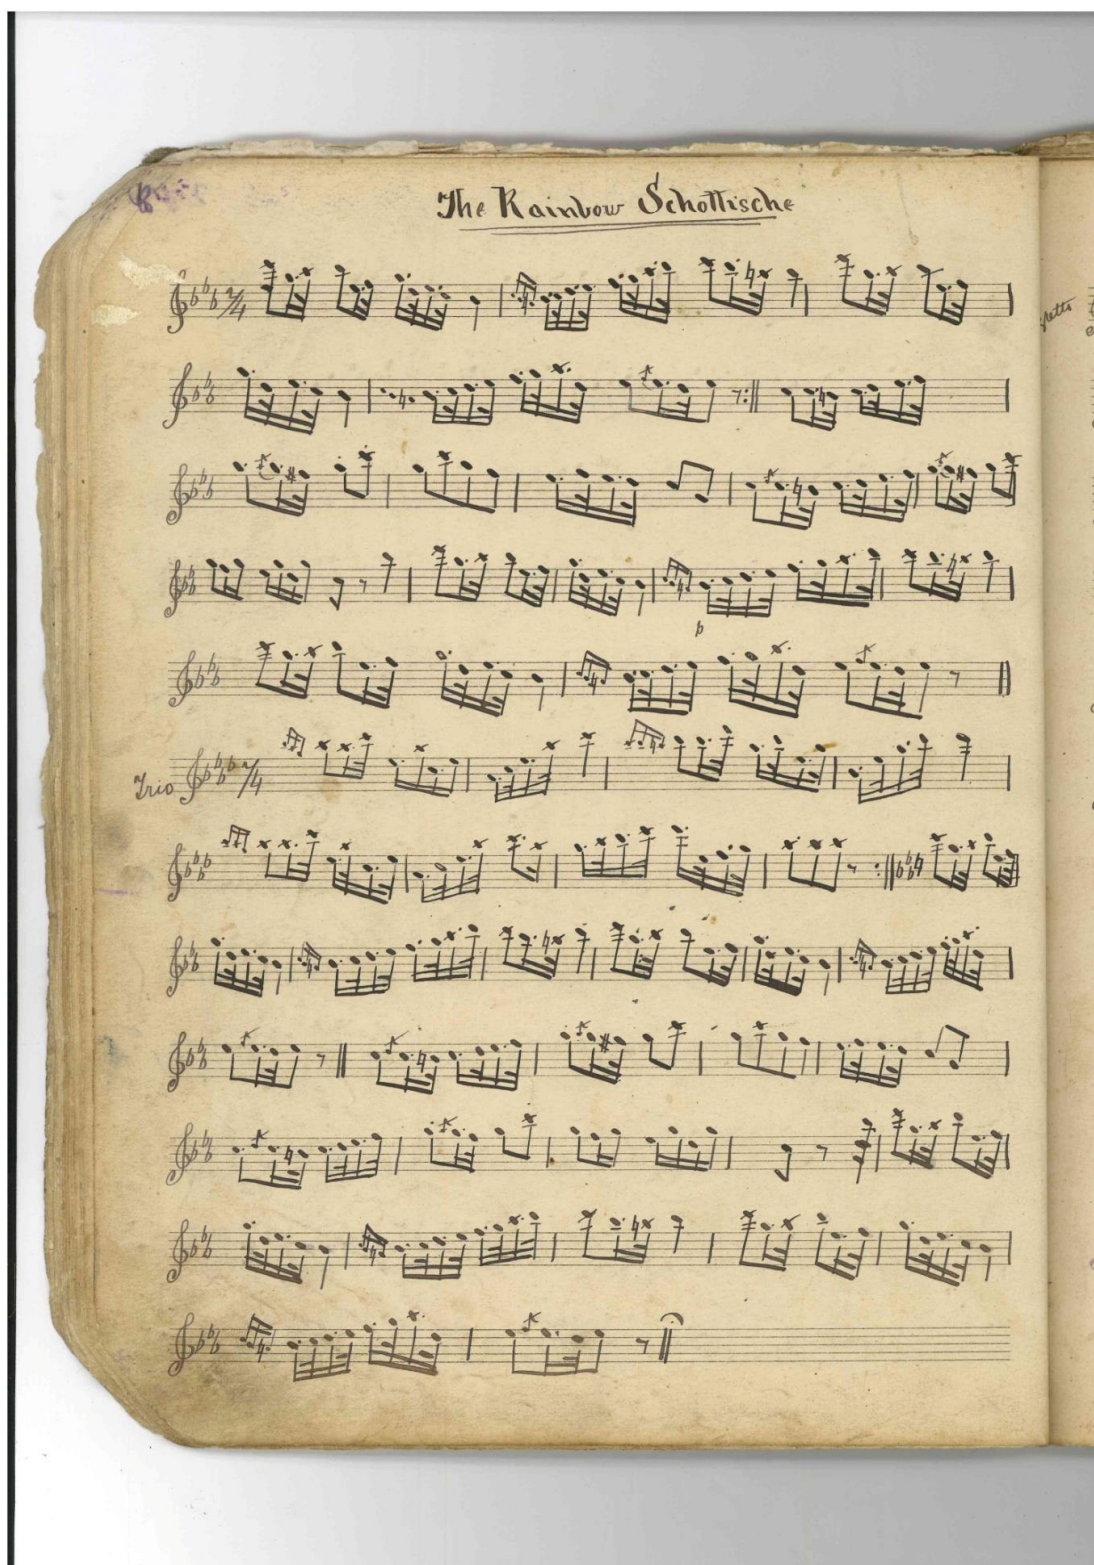 The Rainbow Schottische
2/4
p
Trio 2/4